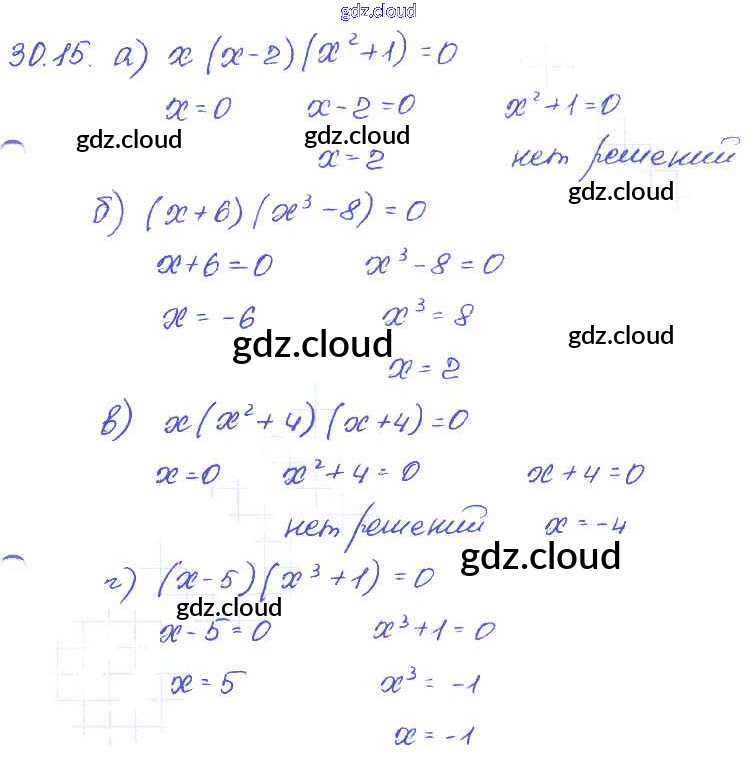 gdz.cloud
30.15. а) x (x-2)(x²+1)=0
x=0 x-2=0 x²+1=0
gdz.cloud gdz.cloud
x=2 нет решений
gdz.cloud
б) (x+6)(x³-8)=0
x+6=0 x³-8=0
x=-6 x³=8
gdz.cloud gdz.cloud
x=2
в) x(x²+4)(x+4)=0
x=0 x²+4=0 x+4=0
нет решений x=-4
gdz.cloud
г) (x-5)(x³+1)=0
gdz.cloud
x-5=0 x³+1=0
x=5 x³=-1
x=-1